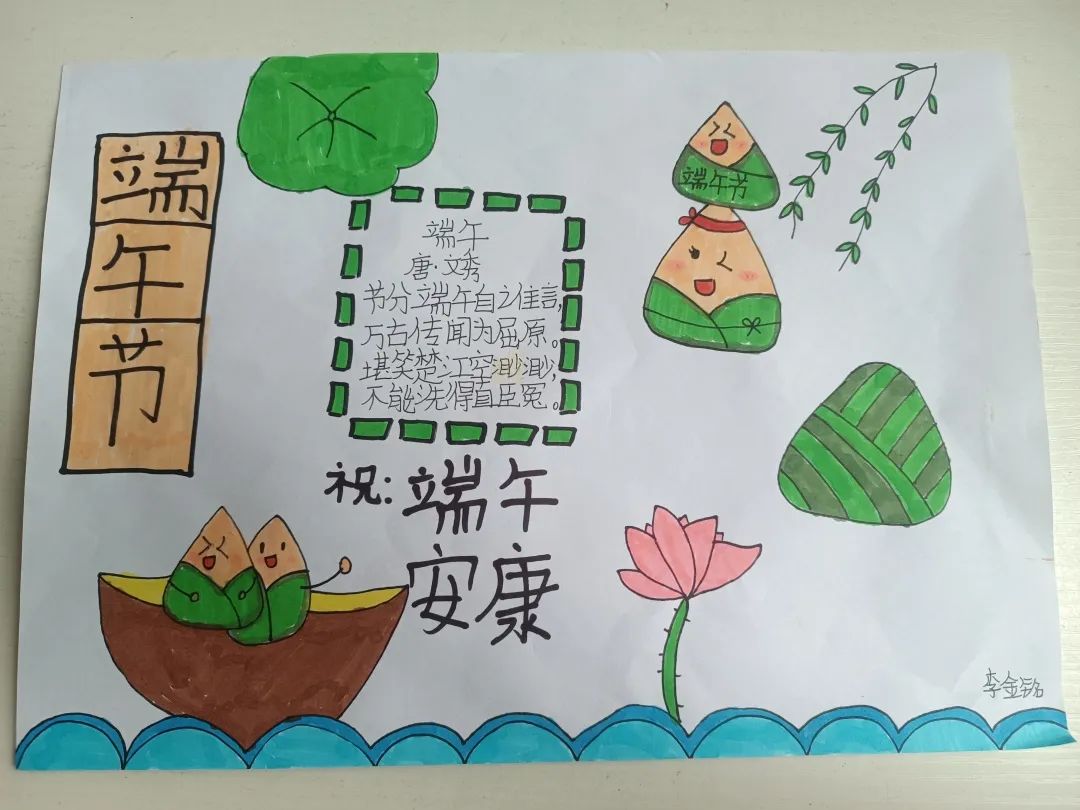 端午节
端午
唐·文秀
节分端午自之佳言,
万古传闻为屈原。
堪笑楚江空渺渺,
不能洗得直臣冤。
祝:端午
安康
端午节
李金铭